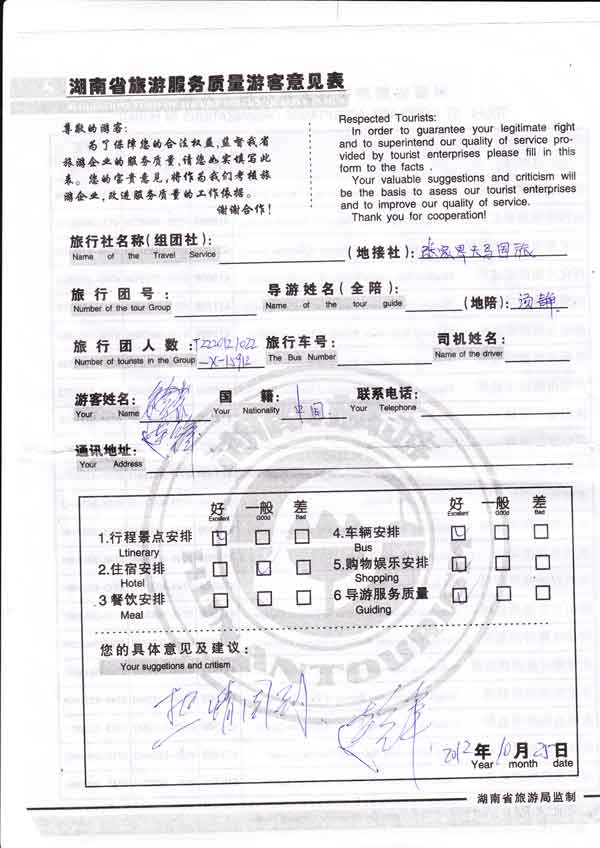 湖南省旅游服务质量游客意见表
尊敬的游客:
为了保障您的合法权益,监督我省
旅游企业的服务质量,请您如实填写此
表。您的宝贵意见,将作为我们考核旅
游企业,改进服务质量的工作依据。
谢谢合作!
Respected Tourists:
In order to guarantee your legitimate right
and to superintend our quality of service pro-
vided by tourist enterprises please fill in this
form to the facts .
Your valuable suggestions and criticism will
be the basis to asess our tourist enterprises
and to improve our quality of service.
Thank you for cooperation!
旅行社名称(组团社): (地接社): 张家界天马国旅
Name of the Travel Service
旅行团号: 导游姓名(全陪) (地陪):
Number of the tour Group Name of the tour guide
旅行团人数: 旅行车号: 司机姓名:
Number of tourists in the Group The Bus Number Name of the driver
T2220121022
-X-15912
游客姓名: 国籍: 中国 联系电话:
Your Name Your Nationality Your Telephone
通讯地址:
Your Address
好 一般 差 好 一般 差
Excellent Good Bad Excellent Good Bad
1.行程景点安排 4.车辆安排
Ltinerary Bus
2.住宿安排 5.购物娱乐安排
Hotel Shopping
3 餐饮安排 6 导游服务质量
Meal Guiding
您的具体意见及建议:
Your suggetions and critism
热情周到
2012年10月25日
Year month date
湖南省旅游局监制